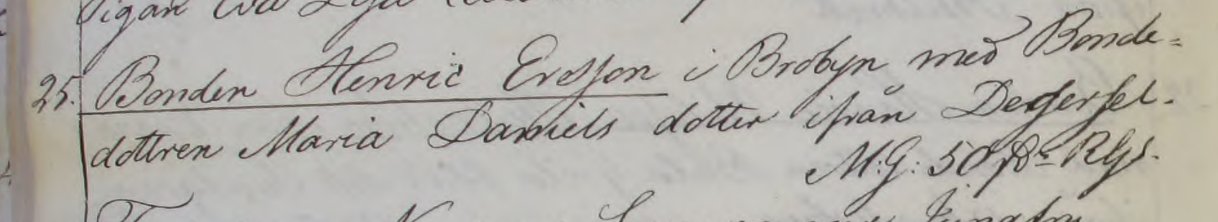 Pigan
25. Bonden Henric Ersson i Brobyn med Bonde=
dottren Maria Daniels dotter ifrån Degersel.
M:G: 50 Rdr Rgs.